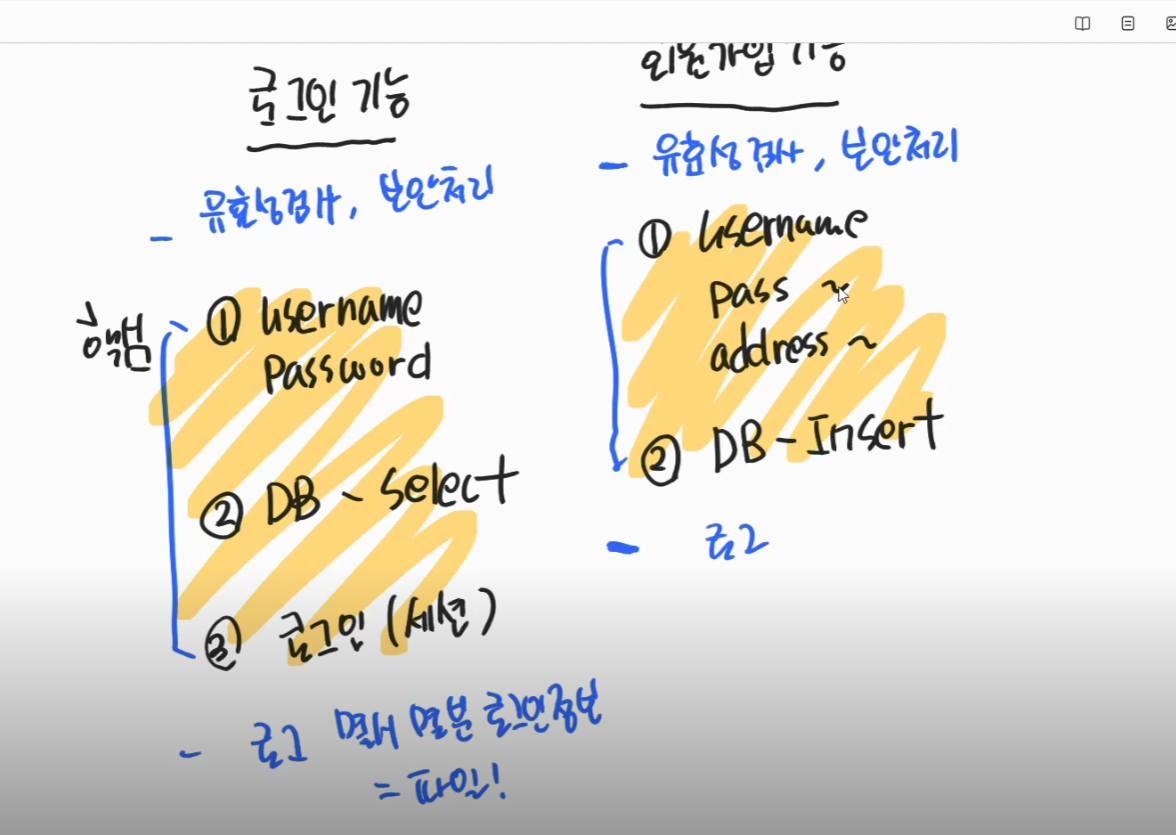 로그인 기능
- 유효성검사, 보안처리
핵심
① Username
Password
② DB - Select
③ 로그인 (세션)
- 로그 몇시 몇분 로그인정보
= 파일!
회원가입 기능
- 유효성검사, 보안처리
① Username
pass ~
address ~
② DB - Insert
- 로그